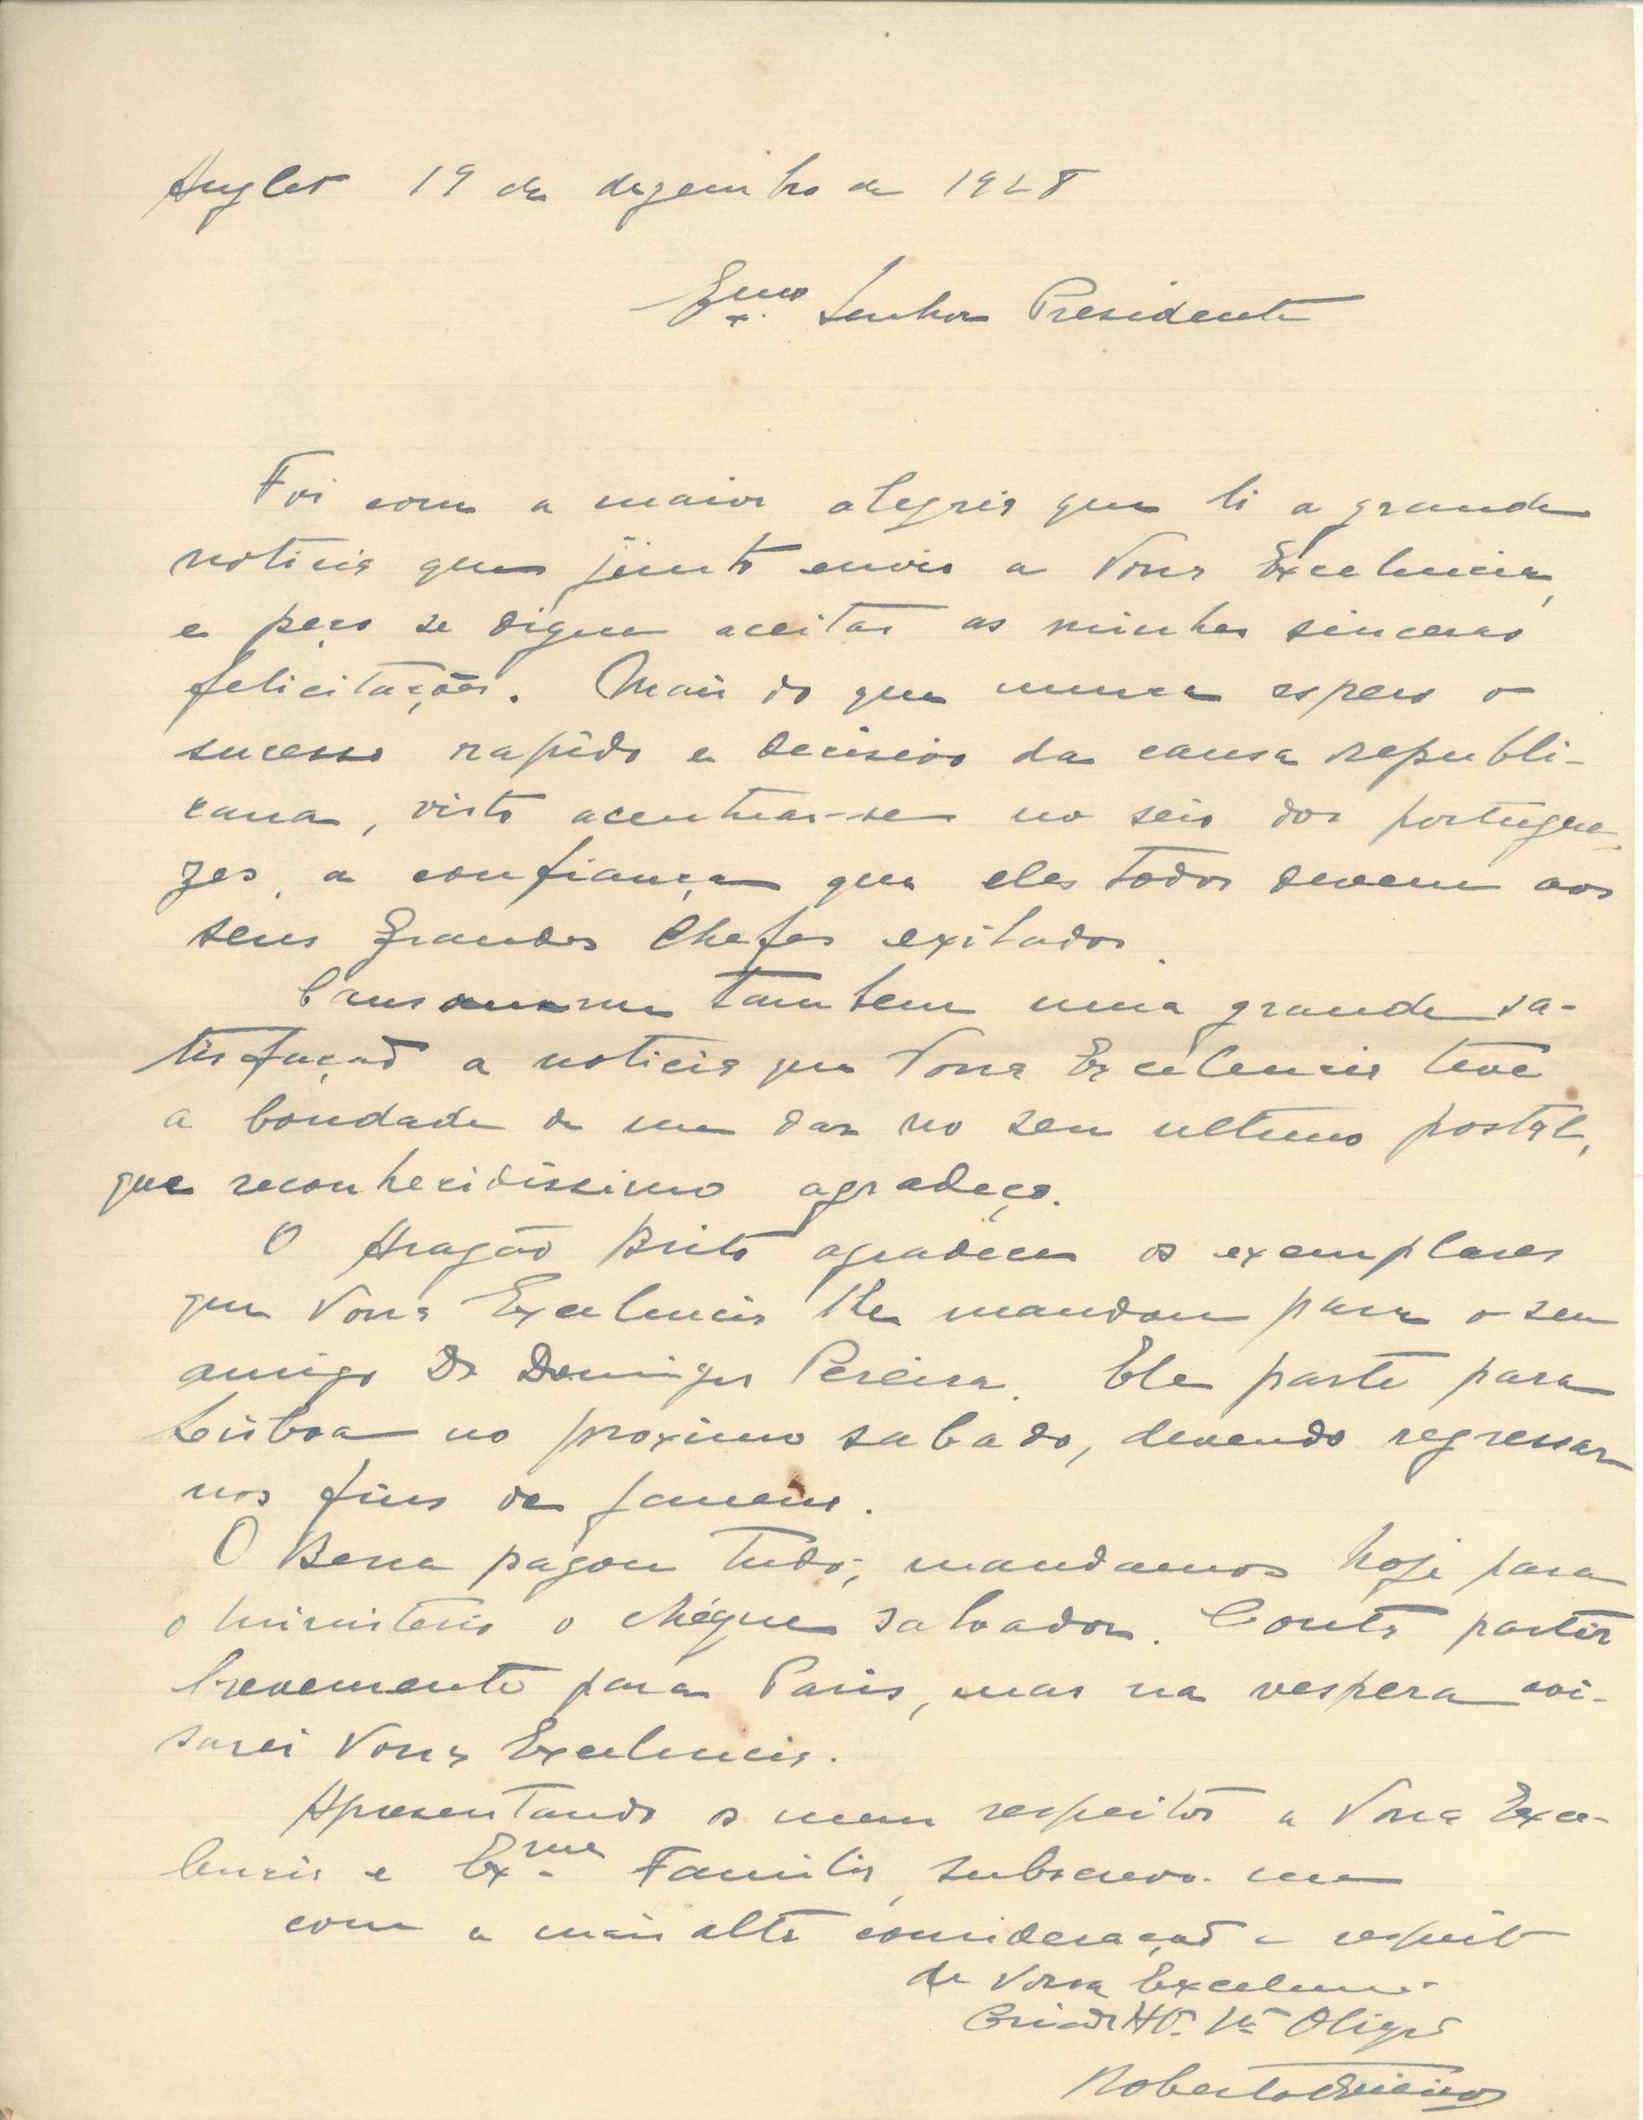 Anglet 19 de dezembro de 1928
Exmo Senhor Presidente
Foi com a maior alegria que li a grande
noticia que junto envio a Vossa Excelencia,
e peço se digne aceitar as minhas sinceras
felicitações. Mais do que nunca espero o
sucesso rapido e decisivo da causa republi-
cana, visto acentuar-se no seio dos portugue-
zes, a confiança que eles todos devem aos
seus Grandes Chefes exilados.
tambem uma grande sa-
tisfação a noticia que Vossa Excelencia teve
a bondade de me dar no seu ultimo postal,
que reconhecidissimo agradeço.
O Aragão Brito agradece os exemplares
que Vossa Excelencia lhe mandou para o seu
amigo Dr Domingos Pereira. Ele parte para
Lisboa no proximo sabado, devendo regressar
nos fins de Janeiro.
O Bessa pagou tudo; mandamos hoje para
o ministerio o chéque salvador. Conto partir
brevemente para Paris, mas na vespera avi-
sarei Vossa Excelencia.
Apresentando os meus respeitos a Vossa Exce-
lencia e Exma Familia, subscrevo-me
com a mais alta consideração e respeito
de Vossa Excelencia
Criado Oligdo
Roberto